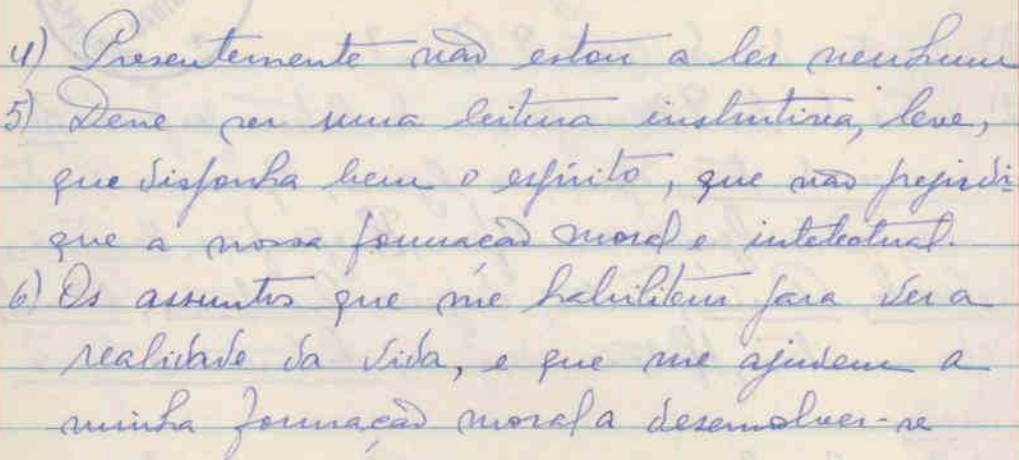 4) Presentemente não estou a ler nenhum
5) Deve ser uma leitura instrutiva, leve,
que disponha bem o espírito, que não prejudi-
que a nossa formação moral e intelectual.
6) Os assuntos que me habilitem para ver a
realidade da vida, e que me ajudem a
minha formação moral a desenvolver-se